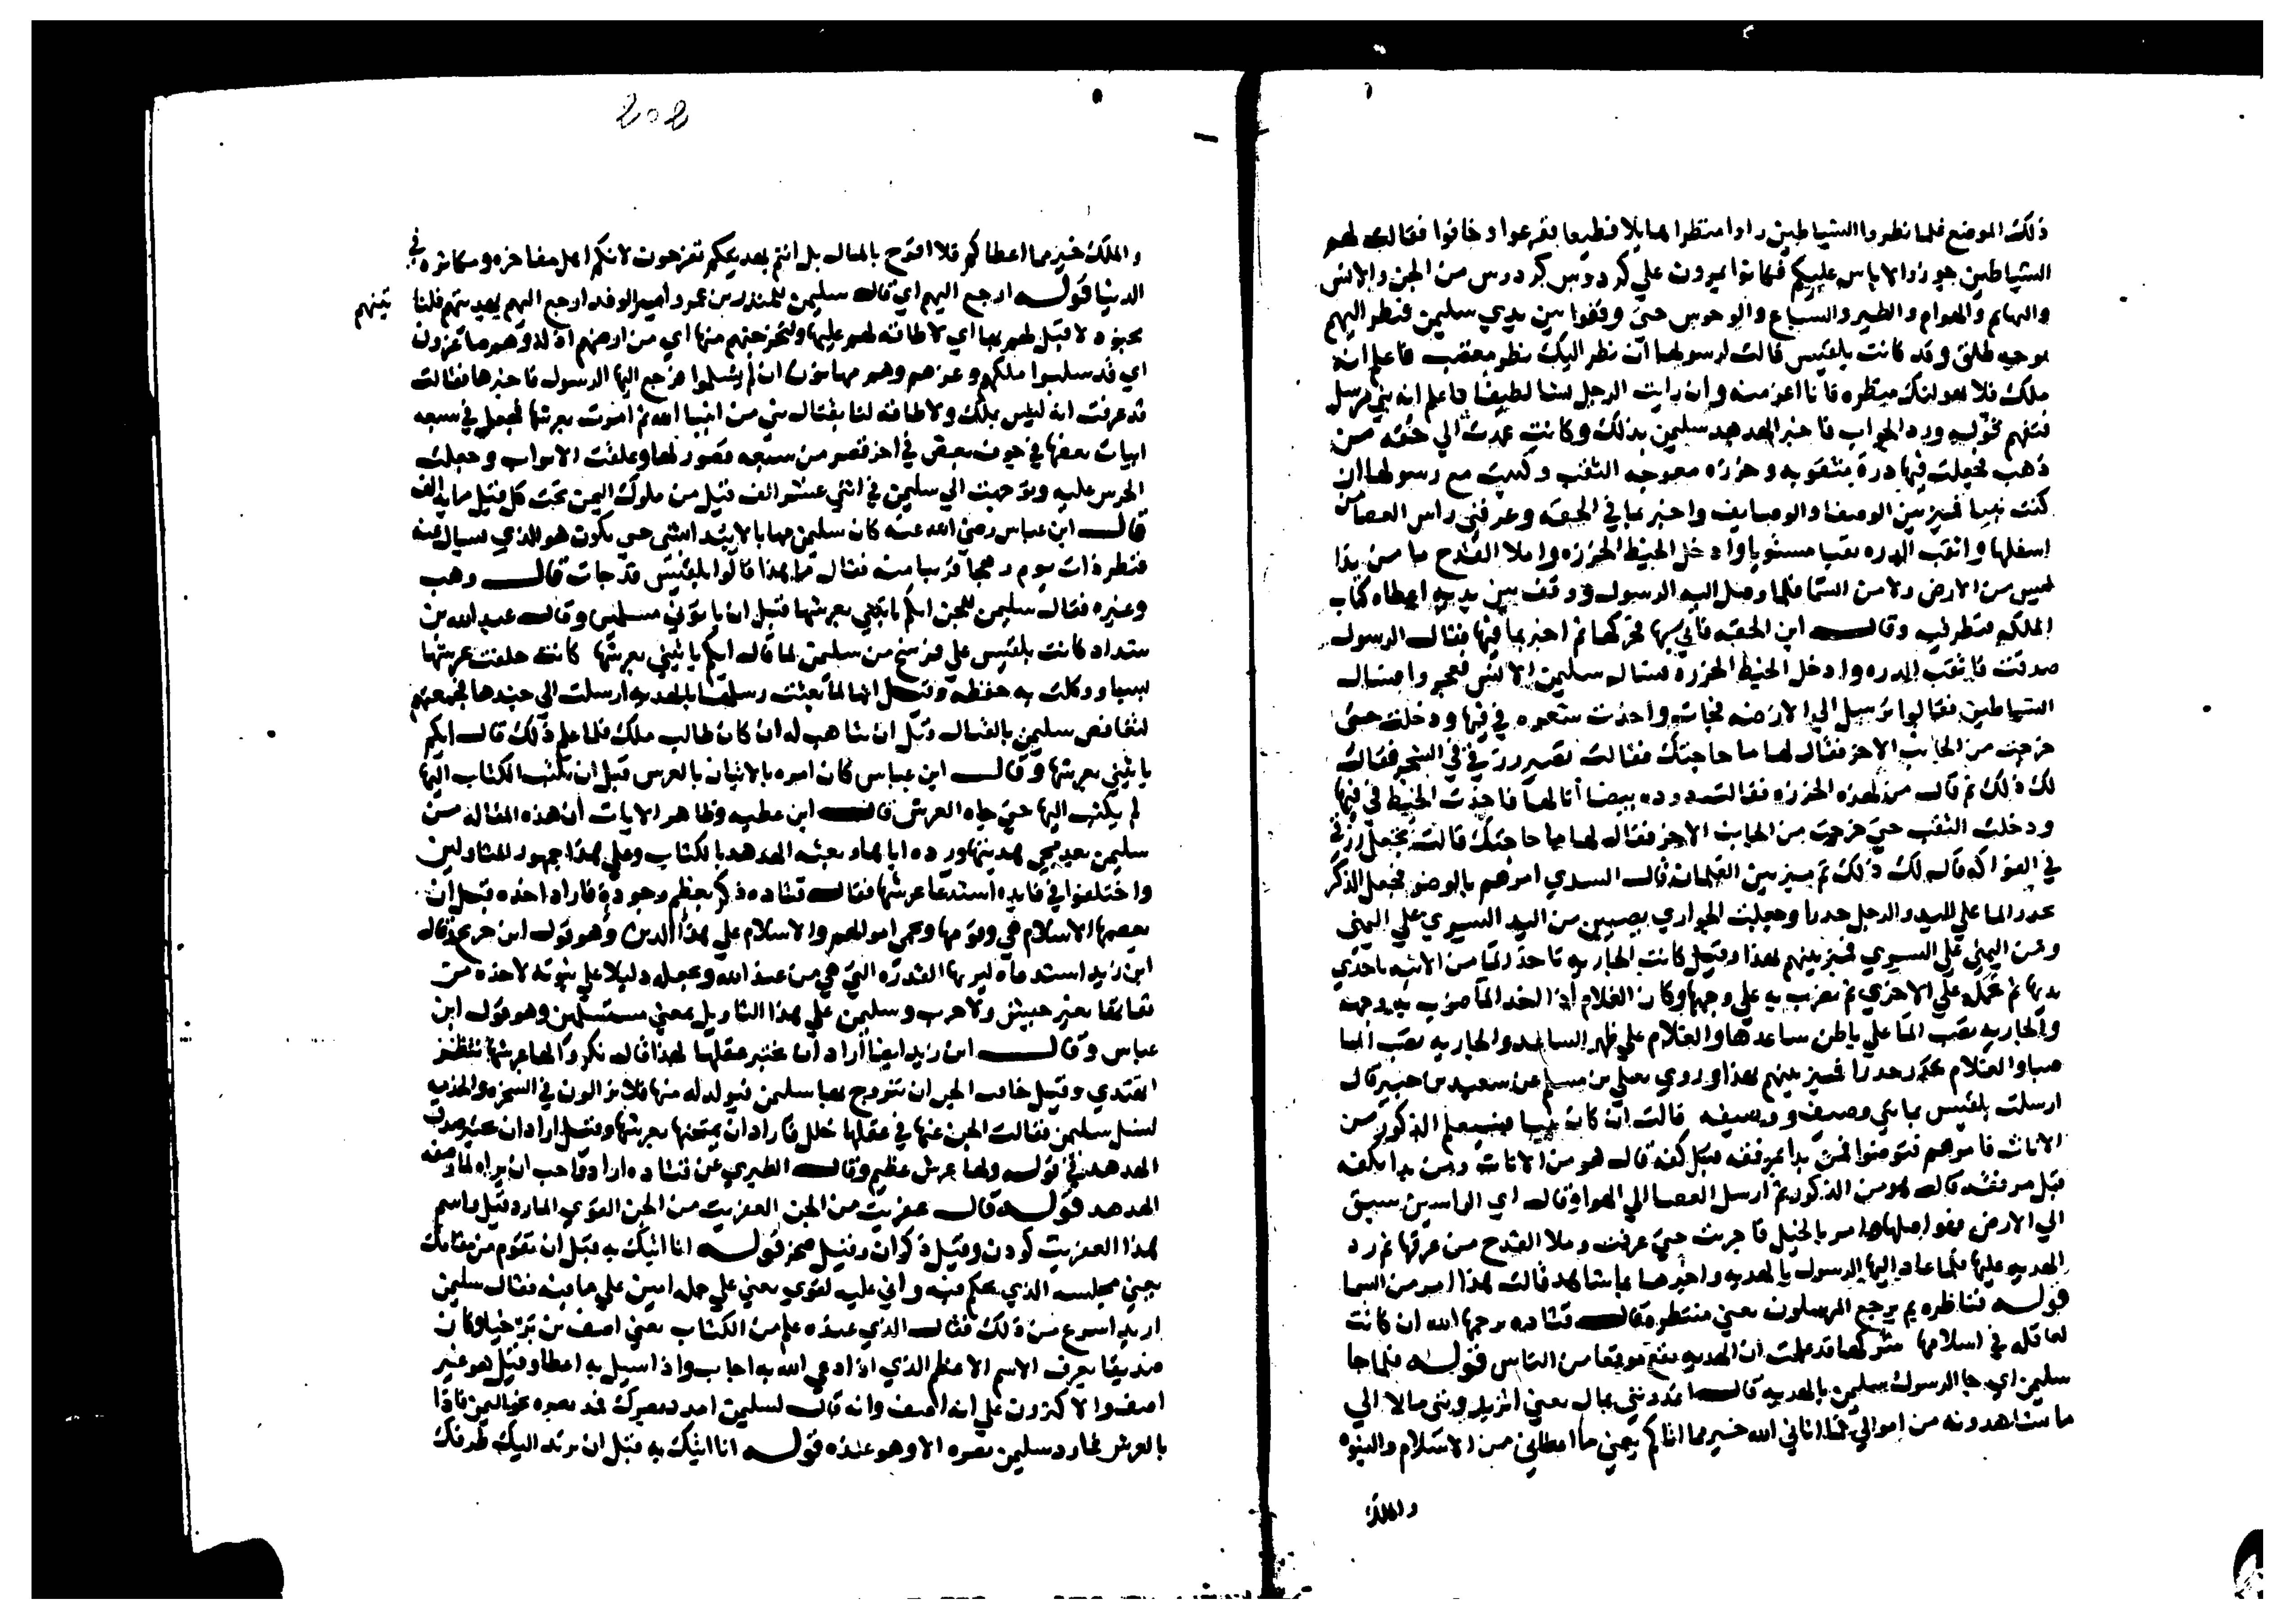 ذلك الموضع فلما نظروا الشياطين راوا منتظرا هايلا فظيعا ففزعوا وخافوا فقالت لهم
الشياطين جوزوا لا باس عليكم فكانوا يمرون علي كردوس كردوس من الجن والانس
والبهايم والهوام والطير والسباع والوحوش حتي وقفوا بين يدي سليمن فنظر اليهم
بوجه طلق وقد كانت بلقيس قالت لرسولها ان نظر اليك نظر مغضب فاعلم انه
ملك فلا يهولنك منظره فانا اعز منه وان رايت الرجل بشا لطيفا فاعلم انه نبي مرسل
فتفهم قوله ورد الجواب فاخبر الهدهد سليمن بذلك وكانت عمدت الي حقه من
ذهب فجعلت فيها درة مثقوبه وخرزه معوجه الثقب وكتبت مع رسولها ان
كنت نبيا فميز بين الوصفا والوصايف واخبر بما في الحقه وعرفني راس العصا من
اسفلها واثقب الدره ثقبا مستويا وادخل الخيط الخرزه واملا القدح ما من ندا
ليس من الارض ولا من السما فلما وصل اليه الرسول ووقف بين يديه اعطاه كتاب
الملكه فنظر فيه وقال اين الحقه فاتي بها فحركها ثم اخبر بما فيها فقال الرسول
صدقت فاثقب الدره وادخل الخيط الخرزه فسال سليمن الانس فعجزوا وسال
الشياطين فقالوا ترسل الي الارضه فجات واخذت شعره في فيها ودخلت حتي
خرجت من الجانب الاخر فقال لها ما حاجتك فقالت تصير رزقي في الشجر فقال
لك ذلك ثم قال من لهذه الخرزه فقالت دوده بيضا انا لها فاخذت الخيط في فيها
ودخلت الثقب حتي خرجت من الجانب الاخر فقال لها ما حاجتك قالت تجعل رزقي
في الفواكه قال لك ذلك ثم ميز بين الغلمان قال السدي امرهم بالوضو فجعل الذكر
يحدر الما علي اليد والرجل حدرا وجعلت الجواري يصببن من اليد اليسري علي اليمني
ومن اليمني علي اليسري فميز بينهم بهذا وقيل كانت الجاريه تاخذ الما من الانيه باحدي
يديها ثم تجعله علي الاخري ثم تضرب به علي وجهها وكان الغلام اذا اخذ الما ضرب به وجهه
والجاريه تصب الما علي باطن ساعدها والغلام علي ظهر الساعد والجاريه تصب الما
صبا والغلام يحدر حدرا فميز بينهم بهذا وروي يعلي بن مسلم عن سعيد بن جبير قال
ارسلت بلقيس بمايتي وصيف ووصيفه قالت ان كان نبيا فسيعلم الذكور من
الاناث فامرهم فتوضوا فمن بدا بمرفقه قبل كفه قال هو من الاناث ومن بدا بكفه
قبل مرفقه قال هو من الذكور ثم ارسل العصا الي الهوا وقال اي الراسين سبق
الي الارض فهو اصلها وامر بالخيل فاجريت حتي عرقت وملا القدح من عرقها ثم رد
الهديه عليها فلما عاد اليها الرسول بالهديه واخبرها بما شاهد قالت هذا امر من السما
قوله فناظره بم يرجع المرسلون يعني منتظره قال قتاده يرحمها الله ان كانت
لعاقله في اسلامها وشركها قد علمت ان الهديه تقع موقعا من الناس قوله فلما جا
سليمن اي جا الرسول سليمن بالهديه قال اتمدونني بمال يعني اتزيدونني مالا الي
ما تشاهدونه من اموالي فما اتاني الله خير مما اتاكم يعني ما اعطاني من الاسلام والنبوه
والملك
202
والملك خير مما اعطاكم فلا افرح بالمال بل انتم بهديتكم تفرحون لانكم اهل مفاخره ومكاثره في
الدنيا قوله ارجع اليهم اي قال سليمن للمنذر بن عمرو امير الوفد ارجع اليهم بهديتهم فلنا تينهم
بجنود لا قبل لهم بها اي لا طاقه لهم عليها ولنخرجنهم منها اي من ارضهم اذله وهم صاغرون
اي قد سلبوا ملكهم وعزهم وهم مهانون ان لم يسلموا فرجع اليها الرسول فاخبرها فقالت
قد عرفت انه ليس بملك ولا طاقه لنا بقتال نبي من انبيا الله ثم امرت بعرشها فجعل في سبعه
ابيات بعضها في جوف بعض في اخر قصر من سبعه قصور لها وغلقت الابواب وجعلت
الحرس عليه وتوجهت الي سليمن في اثني عشر الف قيل من ملوك اليمن تحت كل قيل مايه الف
قال ابن عباس رضي الله عنه كان سليمن مهابا لا يبتدا بشي حتي يكون هو الذي يسال عنه
فنظر ذات يوم رهجا قريبا منه فقال ما هذا قالوا بلقيس قد جات قال وهب
وغيره فقال سليمن للجن ايكم ياتيني بعرشها قبل ان ياتوني مسلمين وقال عبد الله بن
شداد كانت بلقيس علي فرسخ من سليمن لما قال ايكم ياتيني بعرشها كانت خلفت عرشها
بسبا ووكلت به حفظه وقيل انها لما بعثت رسلها بالهديه ارسلت الي جندها فجمعتهم
لتغافص سليمن بالقتال قبل ان يتاهب له ان كان طالب ملك فلما علم ذلك قال ايكم
ياتيني بعرشها وقال ابن عباس كان امره بالاتيان بالعرش قبل ان يكتب الكتاب اليها
لم يكتب اليها حتي جاه العرش قال ابن عطيه وظاهر الايات ان هذه المقاله من
سليمن بعد مجي هديتها ورده اياها وبعثه الهدهد بالكتاب وعلي هذا جمهور المتاولين
واختلفوا في فايده استدعا عرشها فقال قتاده ذكر بعظم وجوده فاراد اخذه قبل ان
يعصمها الاسلام هي وقومها ويحمي اموالهم والاسلام علي هذا الدين وهو قول ابن جريج وقال
ابن زيد استدعاه ليريها القدره التي هي من عند الله ويجعله دليلا علي نبوته لاخذه من
ثقاتها بغير جيش ولا حرب وسليمن علي هذا التاويل بمعني مستسلمين وهو قول ابن
عباس وقال ابن زيد ايضا اراد ان يختبر عقلها لهذا قال نكروا لها عرشها ننظر
اتهتدي وقيل خافت الجن ان يتزوج بها سليمن فيولد له منها فلا يزالون في السخره والخدمه
لنسل سليمن فقالت الجن عنها في عقلها خلل فاراد ان يمتحنها بعرشها وقيل اراد ان يختبر صدق
الهدهد في قوله ولها عرش عظيم وقال الطبري عن قتاده اراد واحب ان يراه لما وصفه
الهدهد قوله قال عفريت من الجن العفريت من الجن القوي المارد وقيل واسم
هذا العفريت كودن وقيل ذكوان وقيل صخر قوله انا اتيك به قبل ان تقوم من مقامك
يعني مجلسه الذي يحكم فيه واني عليه لقوي يعني علي حمله امين علي ما فيه فقال سليمن
اريد اسرع من ذلك فقال الذي عنده علم من الكتاب يعني اصف بن برخيا وكان
صديقا يعرف الاسم الاعظم الذي اذا دعي الله به اجاب واذا سيل به اعطا وقيل هو غير
اصف والاكثرون علي انه اصف وانه قال لسليمن امدد بصرك فمد بصره نحو اليمن فاذا
بالعرش فما رد سليمن بصره الا وهو عنده قوله انا اتيك به قبل ان يرتد اليك طرفك